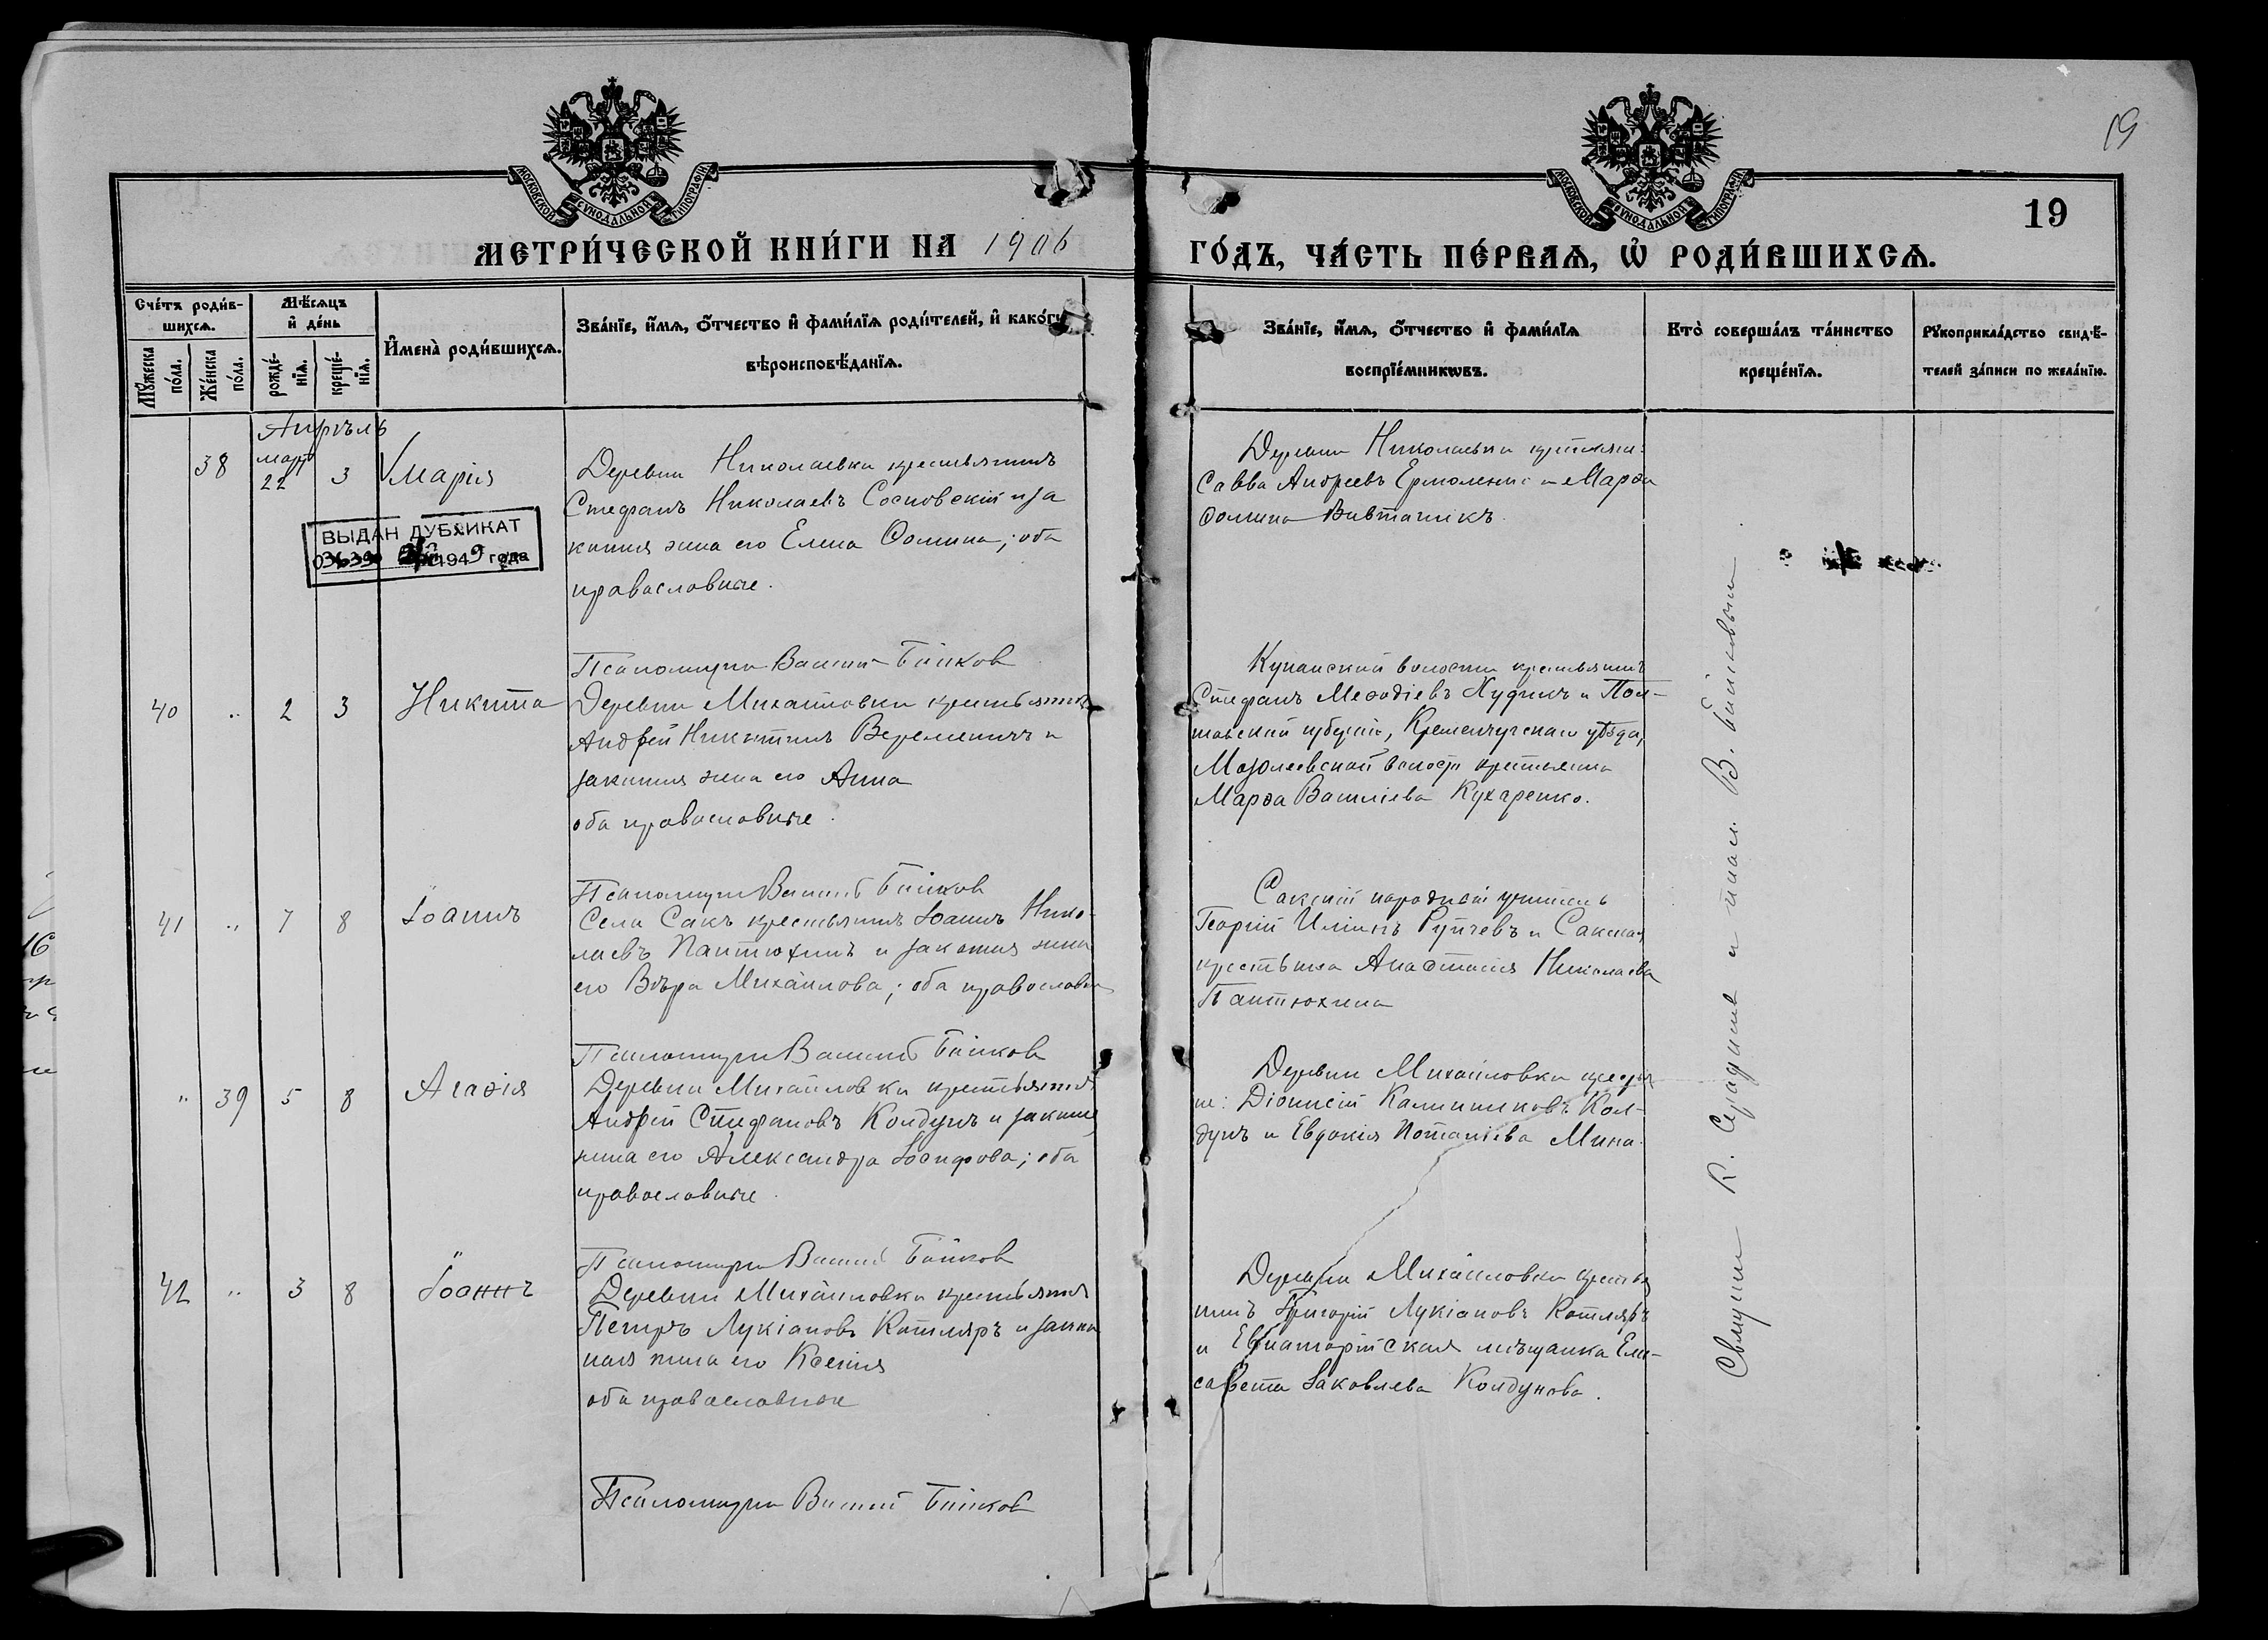 19
МОСКОВСКОЙ СѴНОДАЛЬНОЙ ТИПОГРАФІИ
МОСКОВСКОЙ СѴНОДАЛЬНОЙ ТИПОГРАФІИ
19
МЕТРИ́ЧЕСКОЙ КНИ́ГИ НА 1906
ГО́ДЪ, ЧА́СТЬ ПЕ́РВАѦ, Ѡ҆ РОДИ́ВШИХСѦ.
Сче́тъ роди́в-
шихсѧ.
Мꙋ́жеска по́ла.
Же́нска по́ла.
Мѣ́сѧцъ
и҆ де́нь
рожде́-
нїѧ.
креще́-
нїѧ.
И҆мена̀ роди́вшихсѧ.
Зва́нїе, и҆́мѧ, ѻ҆́тчество и҆ фами́лїѧ роди́телей, и҆ како́гѡ
вѣроисповѣ́данїѧ.
Зва́нїе, и҆́мѧ, ѻ҆́тчество и҆ фами́лїѧ
воспрїе́мникѡвъ.
Кто̀ соверша́лъ та́инство
креще́нїѧ.
Рꙋкоприкла́дство свидѣ́-
телей за́писи по жела́нїю.
Апрѣль
38
мартъ
22
3
Марія
Деревни Николаевки крестьянинъ
Стефанъ Николаевъ Сосновскій и за
конная жена его Елена Ѳомина; оба
православные.
Деревни Николаевки крестьяни:
Савва Андреевъ Ермоленко и Марѳа
Ѳомина
ВЫДАН ДУБЛИКАТ
1949 года
Псаломщикъ Василій Байков
40
"
2
3
Никита
Деревни Михайловки крестьянинъ
Андрей Никитинъ Веремеичъ и
законная жена его Анна
оба православные.
крестьянинъ
Стефанъ Меѳодіевъ Худикъ и Пол-
тавской губерніи, Кременчугскаго уѣзда,
волости крестьянка
Марѳа Василіева Кухаренко.
Псаломщикъ Василій Байков
41
"
7
8
Іоаннъ
Села Сакъ крестьянинъ Іоаннъ Нико-
лаевъ Пантюхинъ и законная жена
его Вѣра Михайлова; оба православн
Сакскій народный учитель
Георгій Иліинъ и Сакская
крестьянка Анастасія Николаева
Пантюхина
Псаломщикъ Василій Байков
"
39
5
8
Агаѳія
Деревни Михайловки крестьянинъ
Андрей Стефановъ Колдунъ и законная
жена его Александра Іосифова; оба
православные.
Деревни Михайловки крестья
не: Діонисій Калинниковъ Кол-
дунъ и Евдокія Потапіева Мина.
Псаломщикъ Василій Байков
42
"
3
8
Іоаннъ
Деревни Михайловки крестьянинъ
Петръ Лукіановъ Котляръ и закон
ная жена его Ксенія
оба православные
Деревни Михайловки крестья
нинъ Григорій Лукіановъ Котляръ
и Евпаторійская мѣщанка Ели-
савета Іаковлева Колдунова.
Псаломщикъ Василій Байков
Священ К. Серадинъ и псал. В. Байковым